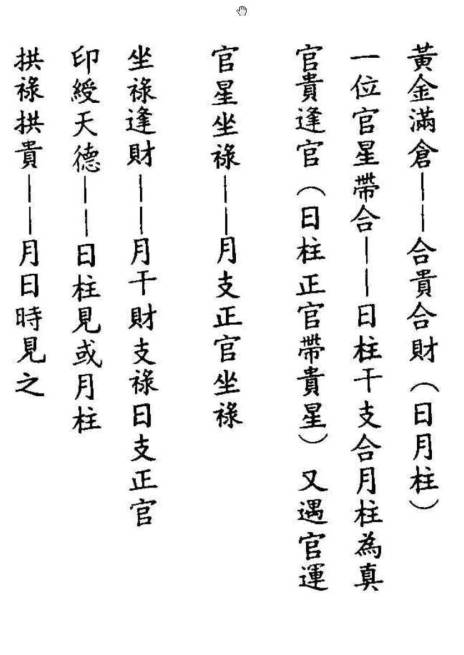 黃金滿倉——合貴合財（日月柱）
一位官星帶合——日柱干支合月柱為真
官貴逢官（日柱正官帶貴星）又遇官運
官星坐祿——月支正官坐祿
坐祿逢財——月干財支祿日支正官
印綬天德——日柱見或月柱
拱祿拱貴——月日時見之